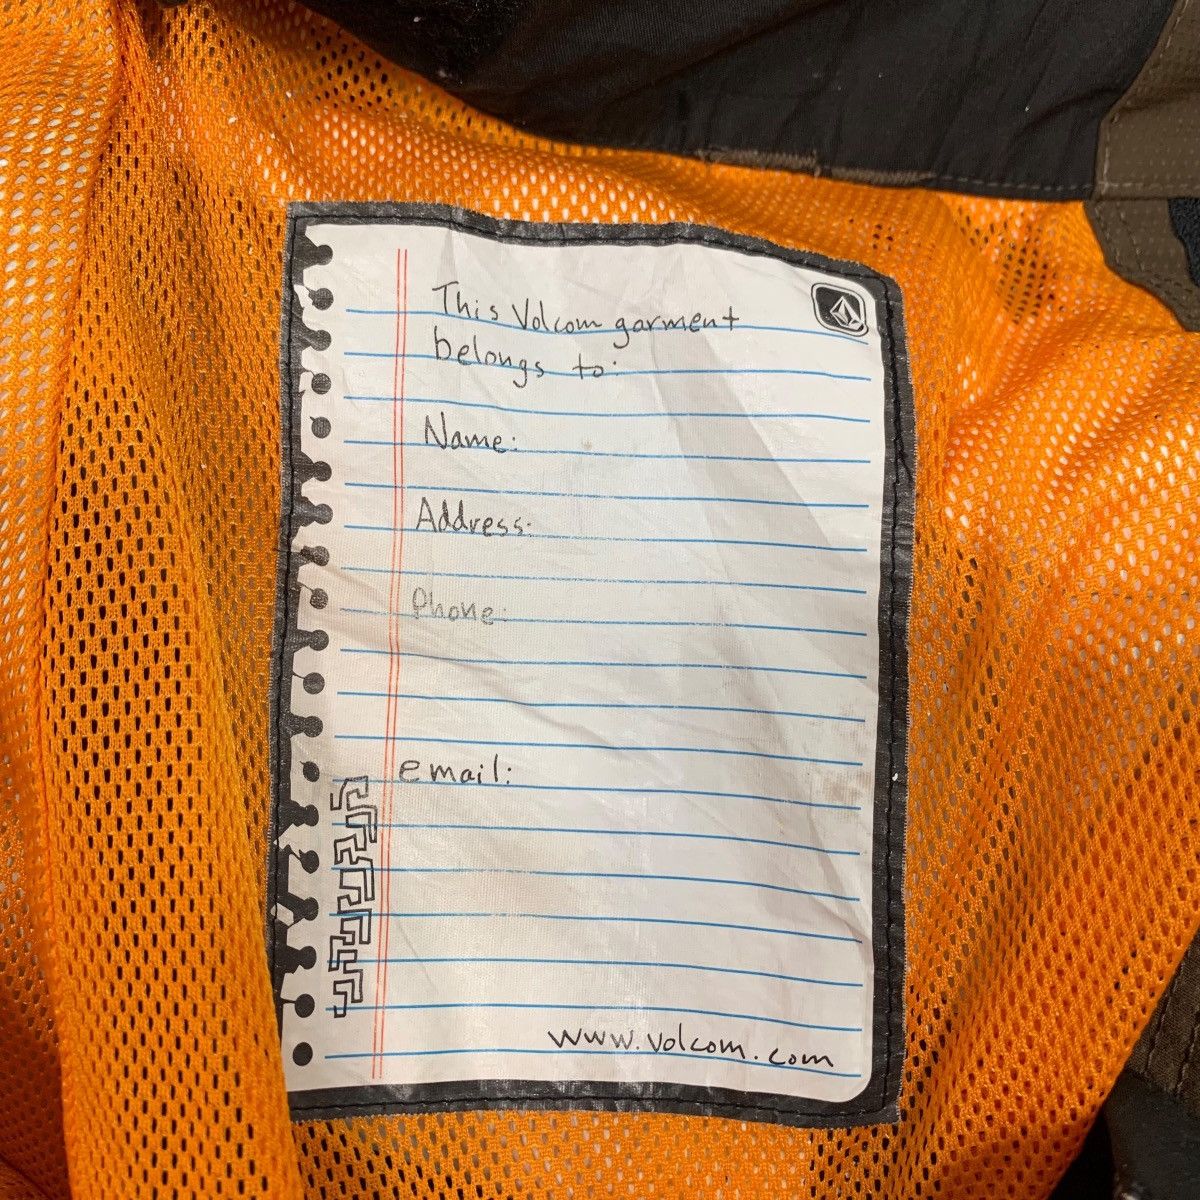 This Volcom garment
belongs to:
Name:
Address:
Phone:
email:
www.volcom.com